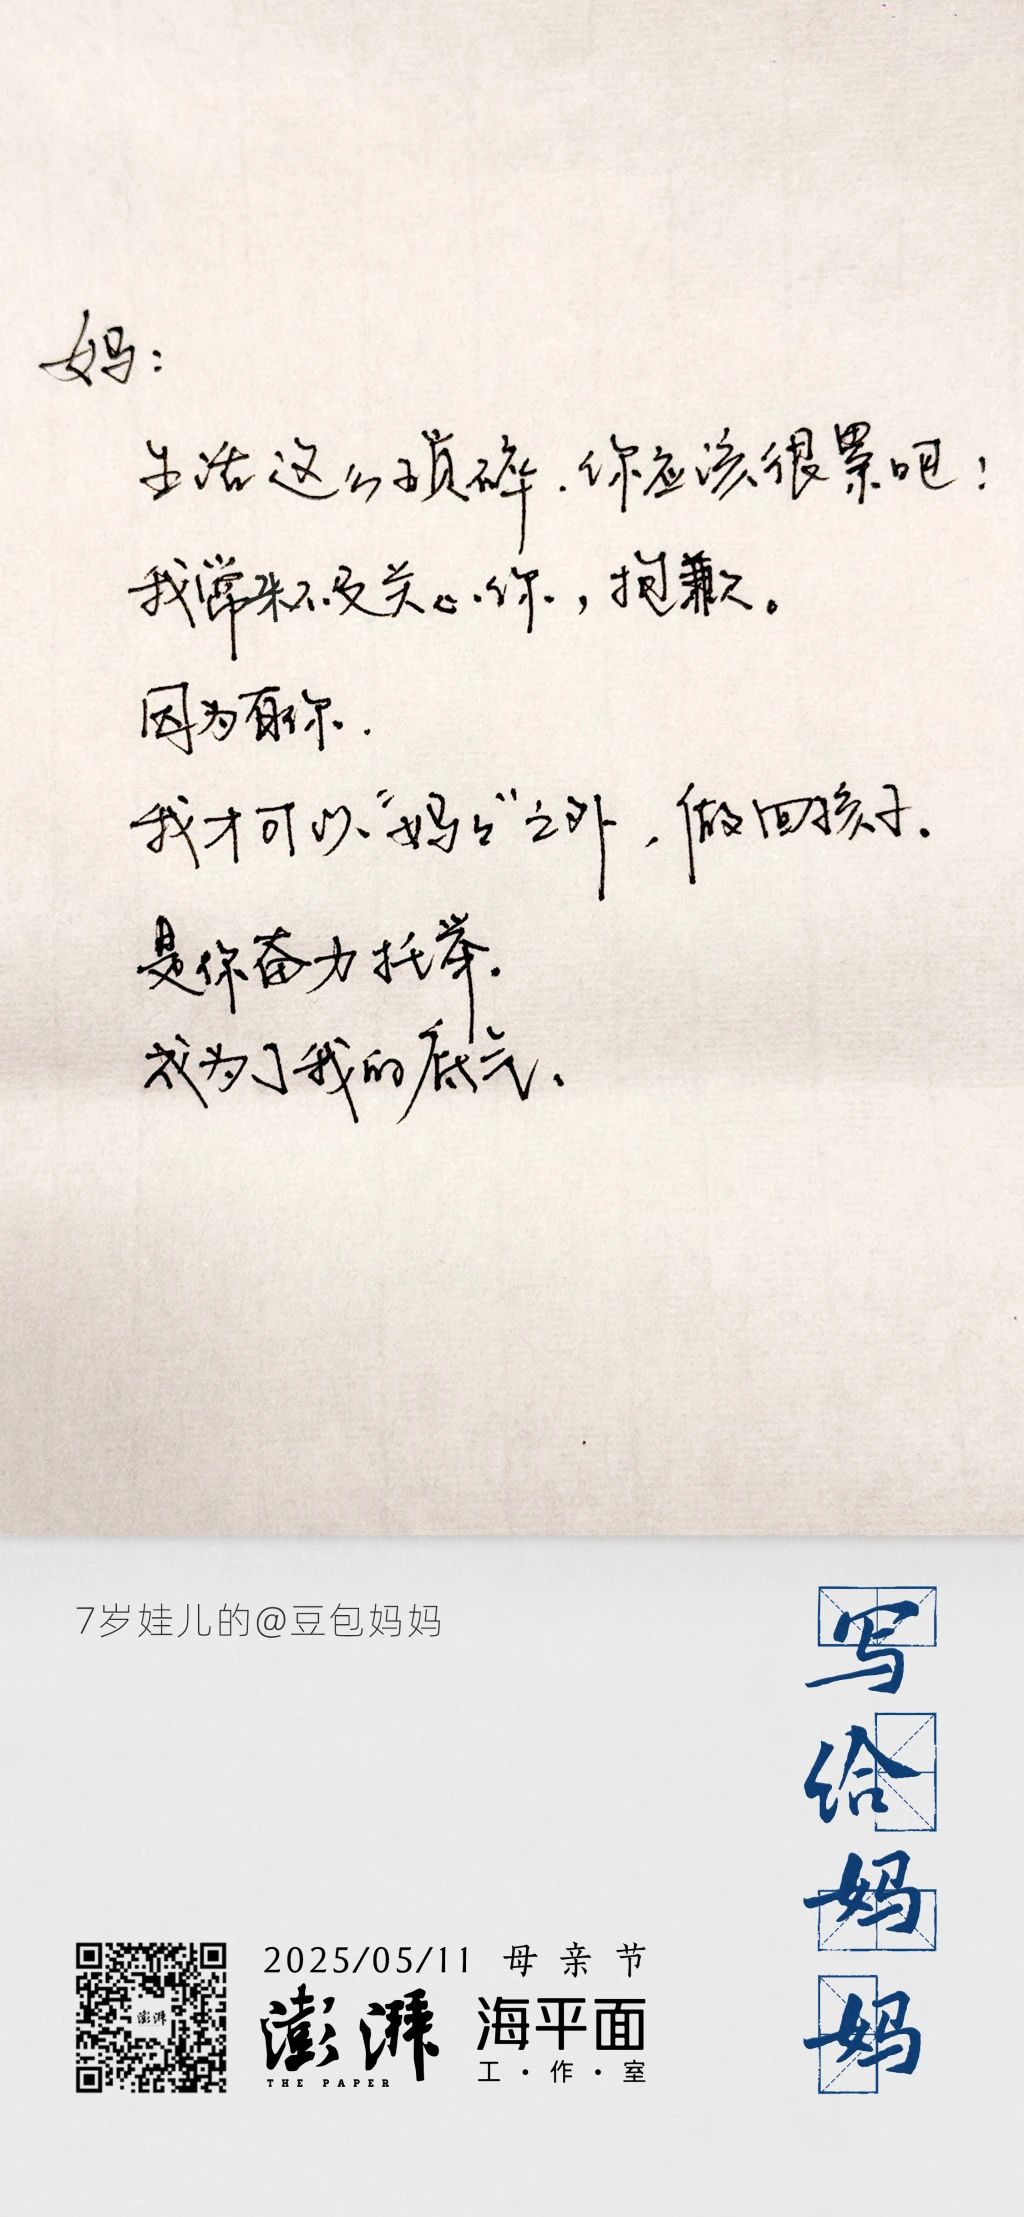 妈：
生活这么琐碎.你应该很累吧！
我常来不及关心你，抱歉。
因为有你.
我才可以“妈妈”之外，做回孩子.
是你奋力托举.
成为了我的底气.
7岁娃儿的@豆包妈妈
写给妈妈
澎湃
2025/05/11 母亲节
澎湃 海平面
THE PAPER 工·作·室